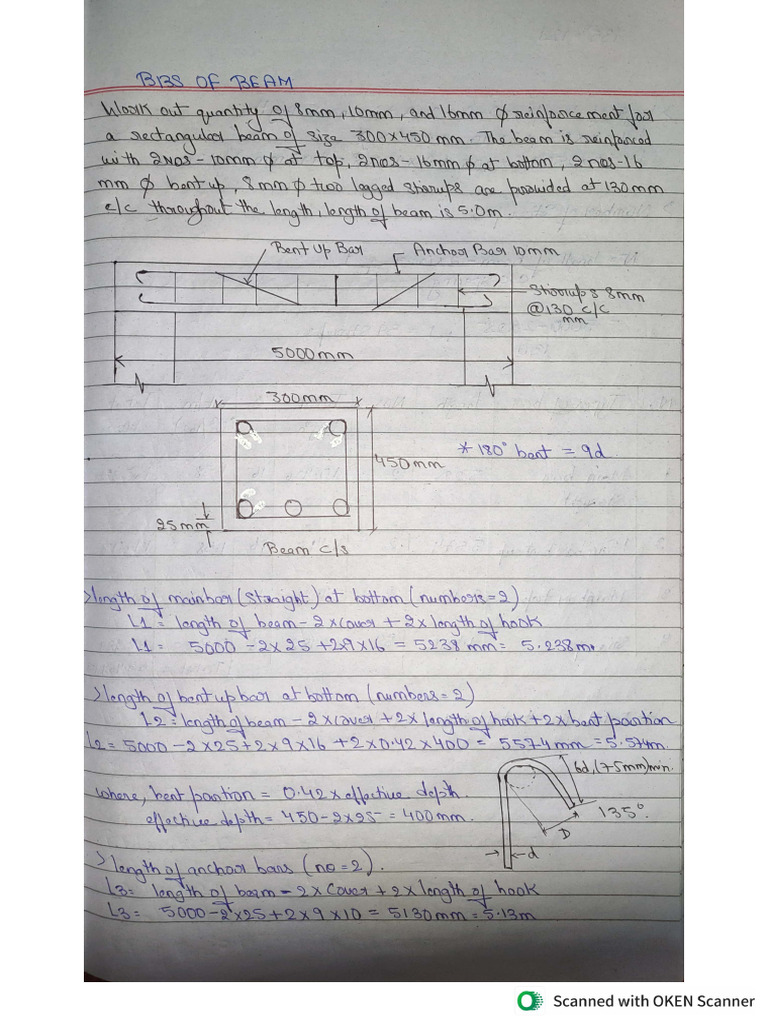 BBS OF BEAM
Work out quantity of 8mm, 10mm, and 16mm ϕ reinforcement for
a rectangular beam of size 300×450 mm. The beam is reinforced
with 2Nos-10mm ϕ at top, 2nos-16mm ϕ at bottom, 2 nos-16
mm ϕ bent up, 8mm ϕ two legged stirrups are provided at 130mm
c/c throughout the length, length of beam is 5.0m.
Bent Up Bar
Anchor Bar 10mm
Stirrups 8mm
@130 c/c
mm
5000mm
300mm
* 180° bent = 9d
450mm
25mm
Beam c/s
>length of mainbar (straight) at bottom (numbers=2)
L1 = length of beam - 2×cover + 2×length of hook
L1 = 5000 - 2×25 + 2×9×16 = 5238 mm = 5.238m
>length of bent up bar at bottom (numbers=2)
L2 = length of beam - 2×cover + 2×length of hook + 2×bent portion
L2 = 5000 - 2×25 + 2×9×16 + 2×0.42×400 = 5574mm = 5.574m.
where, bent portion = 0.42×effective depth.
effective depth = 450-2×25 = 400mm.
6d, (75mm)min.
135°.
D
d
>length of anchor bars (no=2).
L3 = length of beam - 2×cover + 2×length of hook
L3 = 5000-2×25+2×9×10 = 5130mm = 5.13m
Scanned with OKEN Scanner